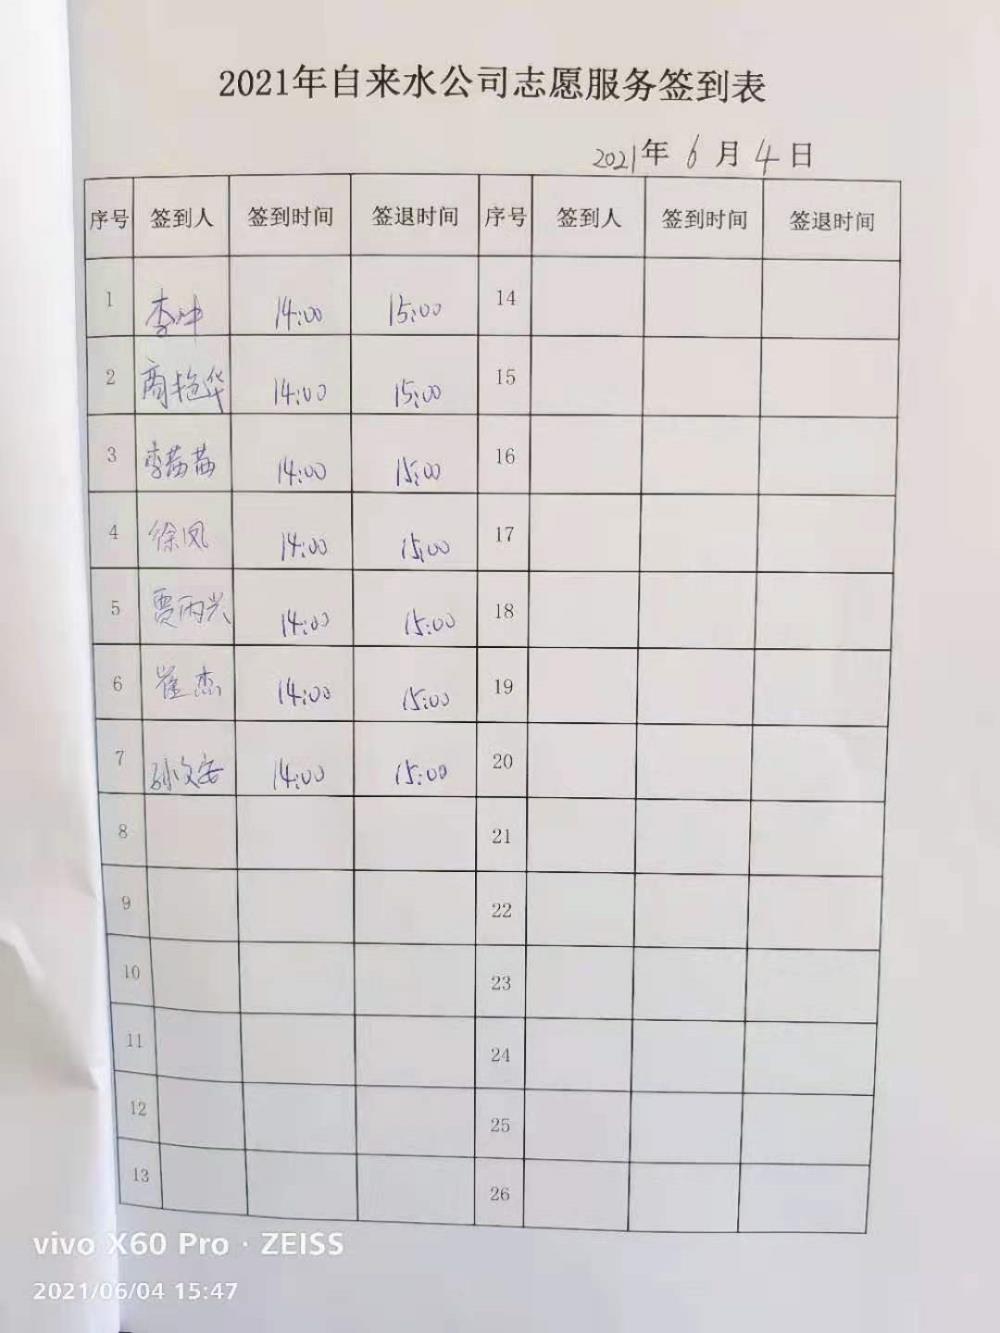 2021年自来水公司志愿服务签到表
2021年 6 月 4 日
序号 签到人 签到时间 签退时间 序号 签到人 签到时间 签退时间
1 李冲 14:00 15:00 14
2 商艳华 14:00 15:00 15
3 李茜茜 14:00 15:00 16
4 徐凤 14:00 15:00 17
5 贾丙兴 14:00 15:00 18
6 崔杰 14:00 15:00 19
7 孙文安 14:00 15:00 20
8 21
9 22
10 23
11 24
12 25
13 26
vivo X60 Pro · ZEISS
2021/06/04 15:47